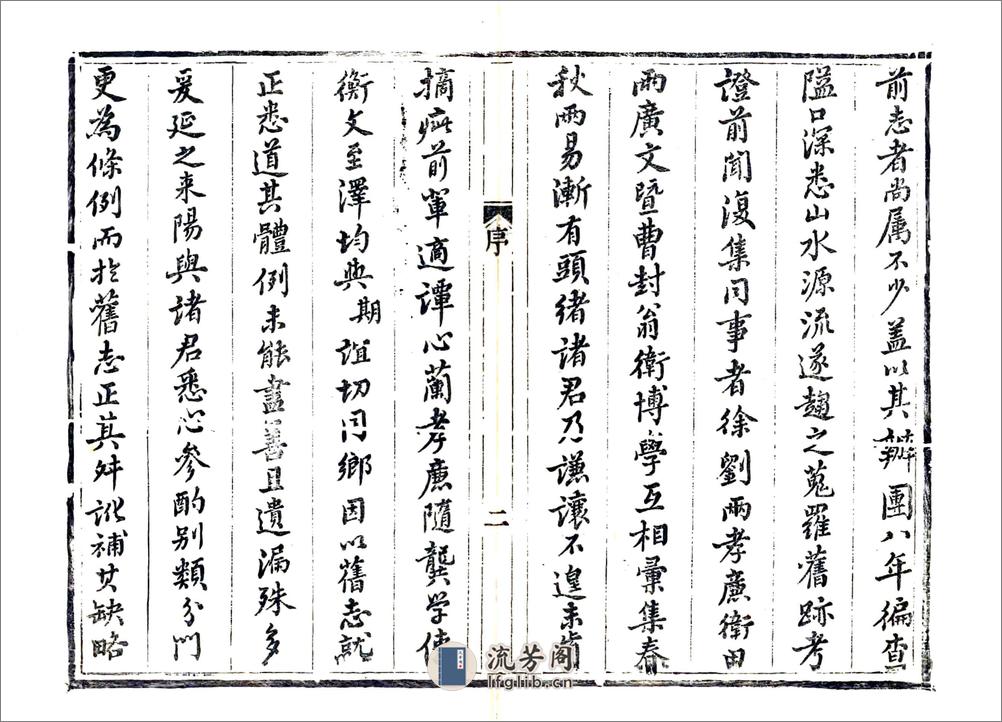 前志者尚属不少盖以其辦團八年徧查
隘口深悉山水源流遂趨之蒐羅舊跡考
證前聞復集同事者徐劉兩孝廉衛田
兩廣文暨曹封翁衛博學互相彙集春
秋兩易漸有頭緒諸君乃謙讓不遑未肯
序
二
摘疵前軰適譚心蘭孝廉隨龔学使
衡文至澤均與期誼切同鄉因以舊志就
正悉道其體例未能盡善且遺漏殊多
爰延之来陽與諸君悉心參酌别類分門
更為條例而於舊志正其舛訛補其缺略
流芳阁
lfglib.cn